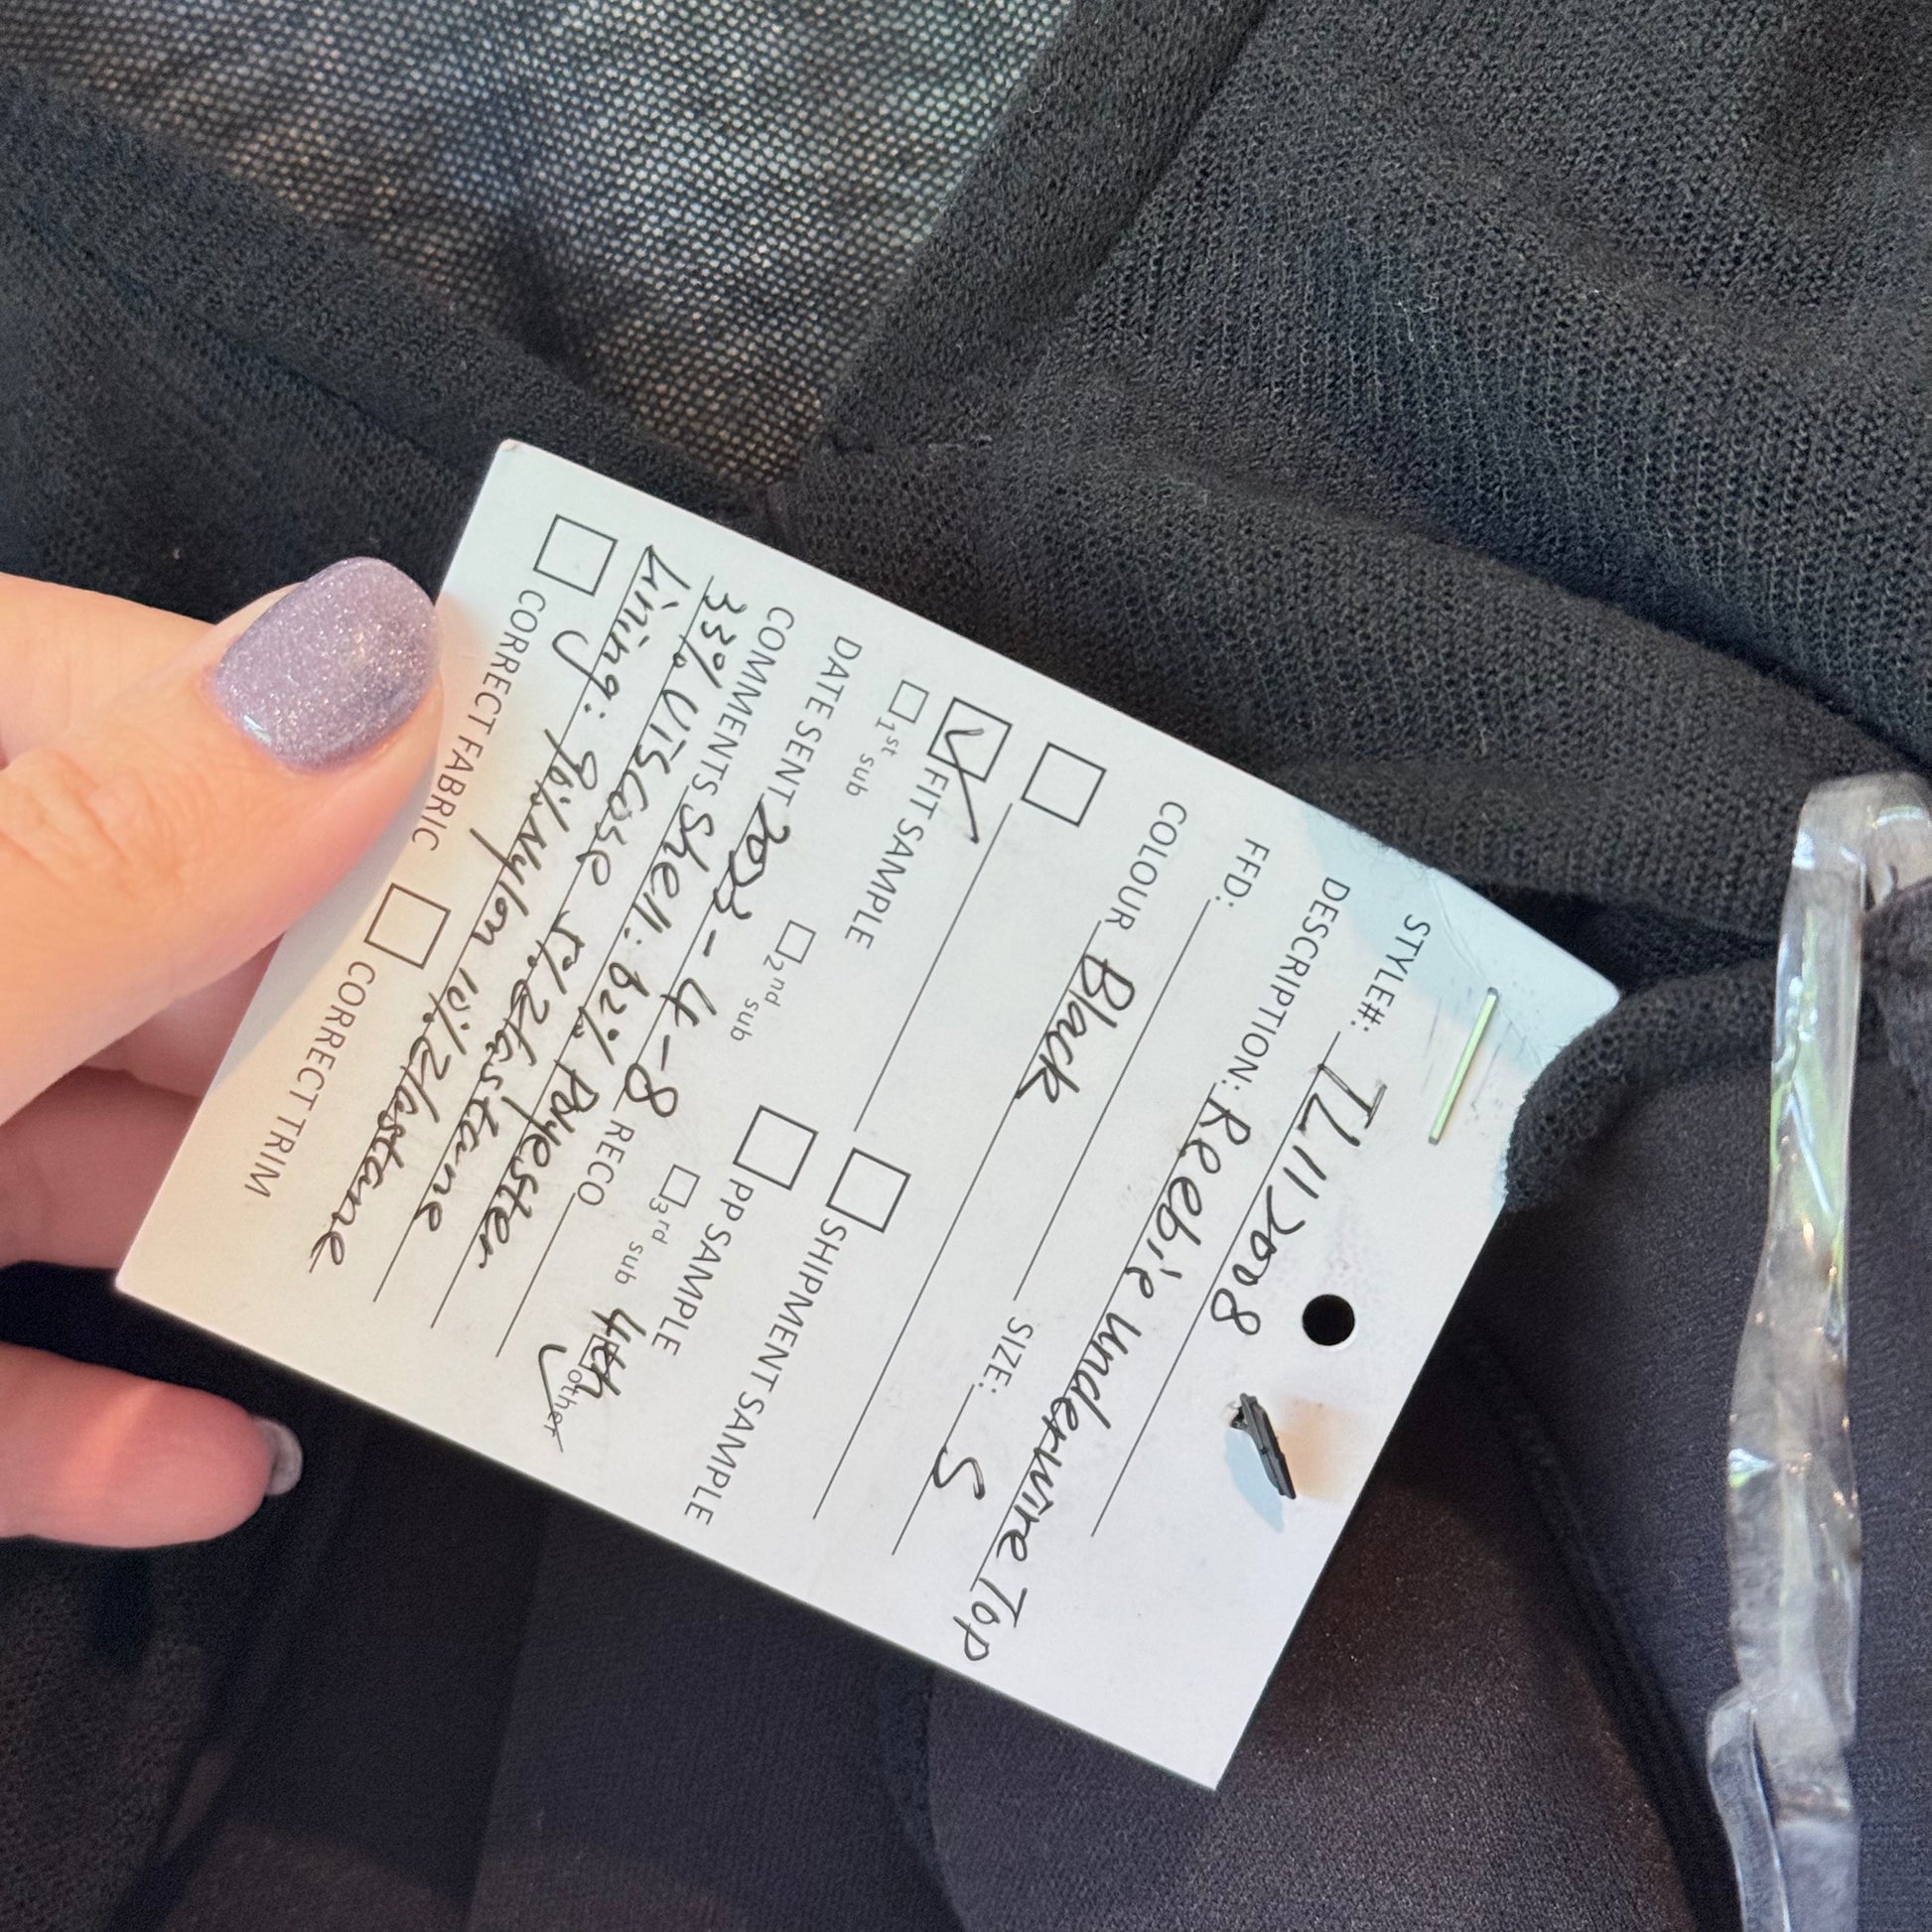 STYLE#: TL112008
DESCRIPTION: Reebie underwire Top
FFD:
COLOUR Black SIZE: S
SHIPMENT SAMPLE
FIT SAMPLE PP SAMPLE
1st sub 2nd sub 3rd sub 4th other
DATE SENT 2023-4-8 RECO
COMMENTS Shell: 62% Polyester
33% Viscose 5% Elastane
Lining: 90% Nylon 10% Elastane
CORRECT FABRIC CORRECT TRIM